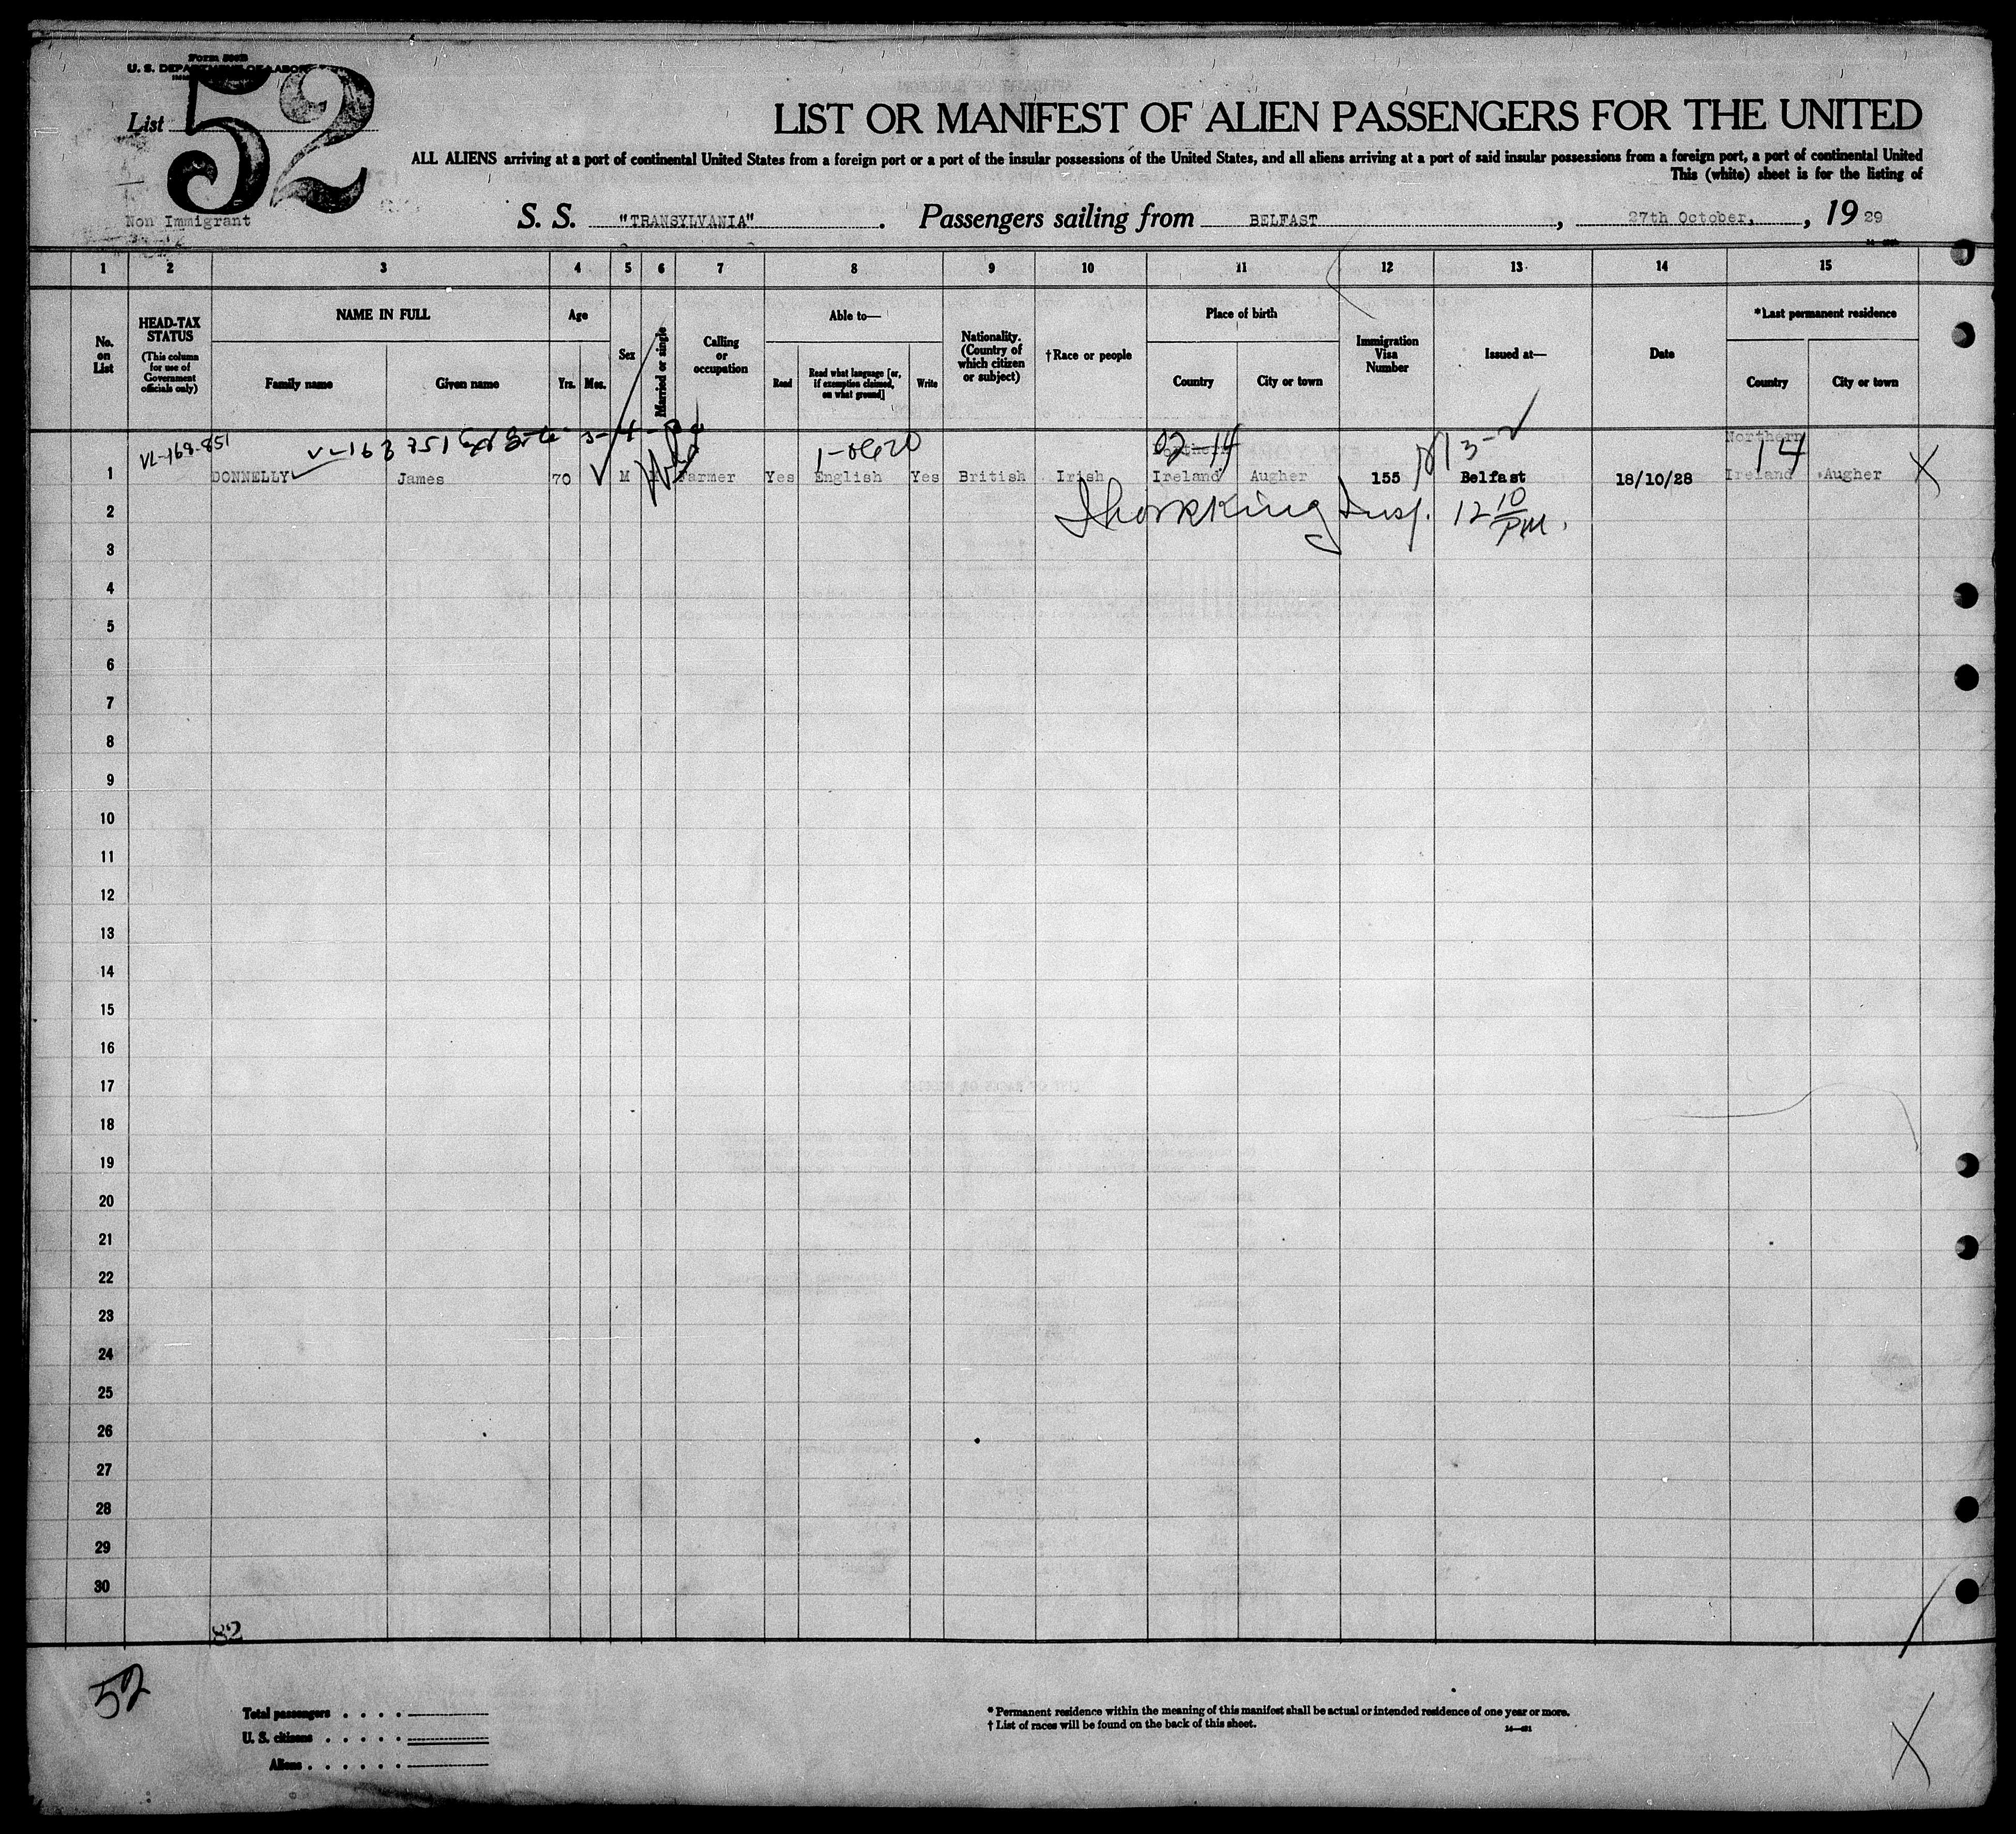 U. S. DEPARTMENT OF LABOR
List 52
LIST OR MANIFEST OF ALIEN PASSENGERS FOR THE UNITED
ALL ALIENS arriving at a port of continental United States from a foreign port or a port of the insular possessions of the United States, and all aliens arriving at a port of said insular possessions from a foreign port, a port of continental United
This (white) sheet is for the listing of
Non Immigrant
S. S. "TRANSYLVANIA". Passengers sailing from BELFAST, 27th October, , 19 29
1 2 3 4 5 6 7 8 9 10 11 12 13 14 15
No. on List
HEAD-TAX STATUS (This column for use of Government officials only)
NAME IN FULL
Family name
Given name
Age
Yrs. Mos.
Sex
Married or single
Calling or occupation
Able to—
Read
Read what language [or, if exemption claimed, on what ground]
Write
Nationality. (Country of which citizen or subject)
†Race or people
Place of birth
Country
City or town
Immigration Visa Number
Issued at—
Date
*Last permanent residence
Country
City or town
VL-168-851
02-14
13-2
Northern
14
1 DONNELLY James 70 M Farmer Yes English Yes British Irish Ireland Augher 155 Belfast 18/10/28 Ireland Augher X
Insp. 12 10 PM.
2
3
4
5
6
7
8
9
10
11
12
13
14
15
16
17
18
19
20
21
22
23
24
25
26
27
28
29
30
82
52
Total passengers
U. S. citizens
Aliens
* Permanent residence within the meaning of this manifest shall be actual or intended residence of one year or more.
† List of races will be found on the back of this sheet.
X